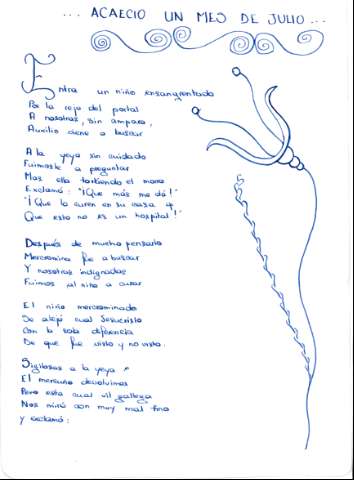 ... ACAECIO UN MES DE JULIO ...
Entra un niño ensangrentado
Por la roja del portal
A nosotras, sin amparo,
Auxilio viene a buscar
A la yeya sin cuidado
Fuimosle a preguntar
Mas ella torciendo el morro
Exclamó: "¡Que más me dá!"
"¡Que lo curen en su casa
Que esto no es un hospital!"
Después de mucho pensarlo
Mercromina fue a buscar
Y nosotras indignadas
Fuimos al niño a curar
El niño mercrominado
Se alejó cual Jesucristo
Con la sola diferencia
De que fue visto y no visto.
Sigilosas a la yeya
El mercurio devolvimos
Pero esta cual vil gallega
Nos miró con muy mal tino
y exclamó: